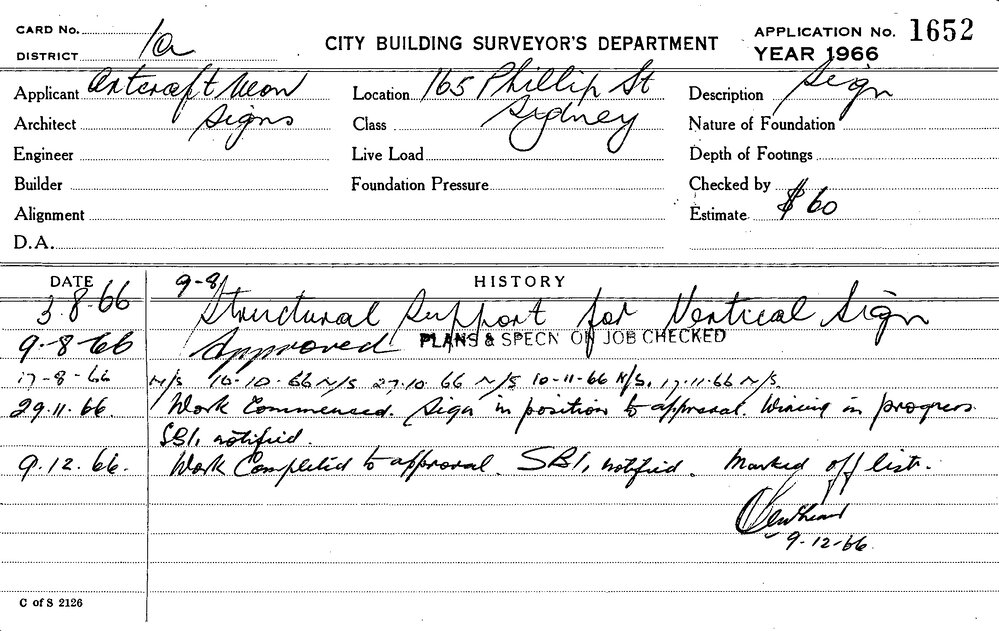 CARD No.
DISTRICT 1a
CITY BUILDING SURVEYOR'S DEPARTMENT
APPLICATION No. 1652
YEAR 1966
Applicant Artcraft Neon
Signs
Location 165 Phillip St
Sydney
Description Sign
Architect
Class
Nature of Foundation
Engineer
Live Load
Depth of Footings
Builder
Foundation Pressure
Checked by
Alignment
Estimate $60
D.A.
DATE
HISTORY
9-8/
3.8.66 Structural Support for Vertical Sign
9-8-66 Approved PLANS & SPECN ON JOB CHECKED
17-8-66 N/S 10-10.66 N/S 27.10.66 N/S 10-11-66 N/S. 17.11.66 N/S.
29.11.66. Work Commenced. Sign in position to approval. Wiring in progress.
SBI, notified.
9.12.66. Work Completed to approval. SBI, notified. Marked off list.
9-12-66.
C of S 2126